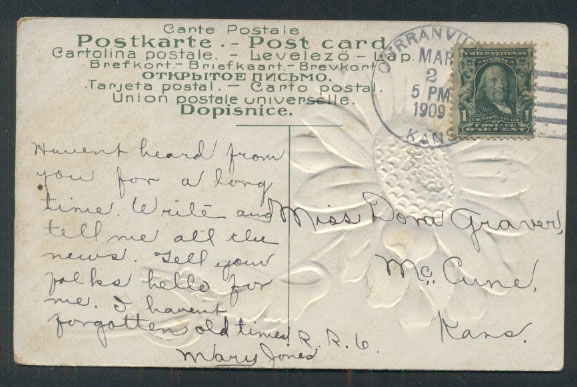 Carte Postale
Postkarte.- Post card.
Cartolina postale. - Levelező - Lap.
Brefkort - Briefkaart - Brevkort
ОТКРЫТОЕ ПИСЬМО.
Tarjeta postal. - Carto postal.
Union postale universelle.
Dopisnice.
CURRANVILLE
MAR
2
5 PM
1909
KANS
1 1
POSTAGE
ONE CENT
Havent heard from
you for a long
time. Write and
tell me all the
news. Tell your
folks hello for
me. I havent
forgotten old times
Mary Jones
Miss Dora Graver,
Mc Cune,
R. R. 6. Kans.